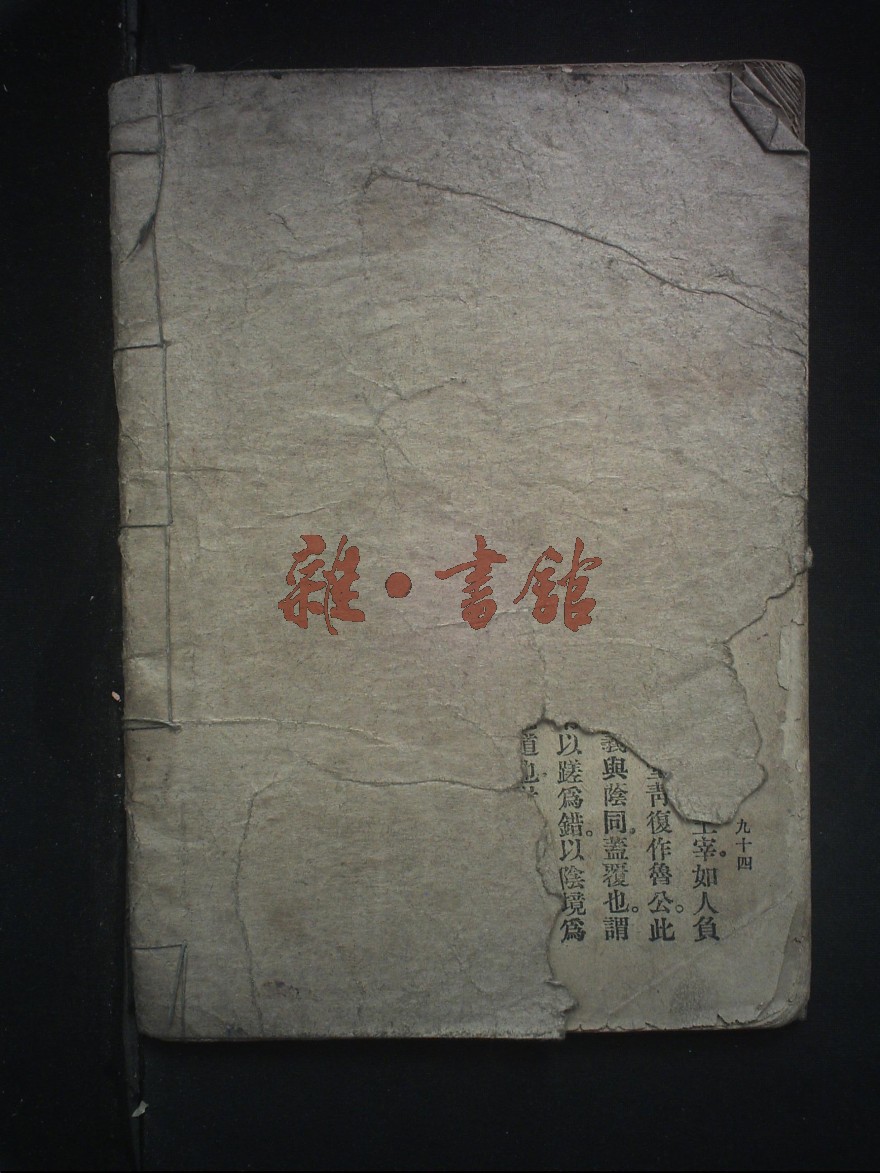 雜·書館
九十四
宰。如人負
靑復作魯公。此
義與陰同。蓋覆也。謂
以蹉爲錯。以陰境爲
道也